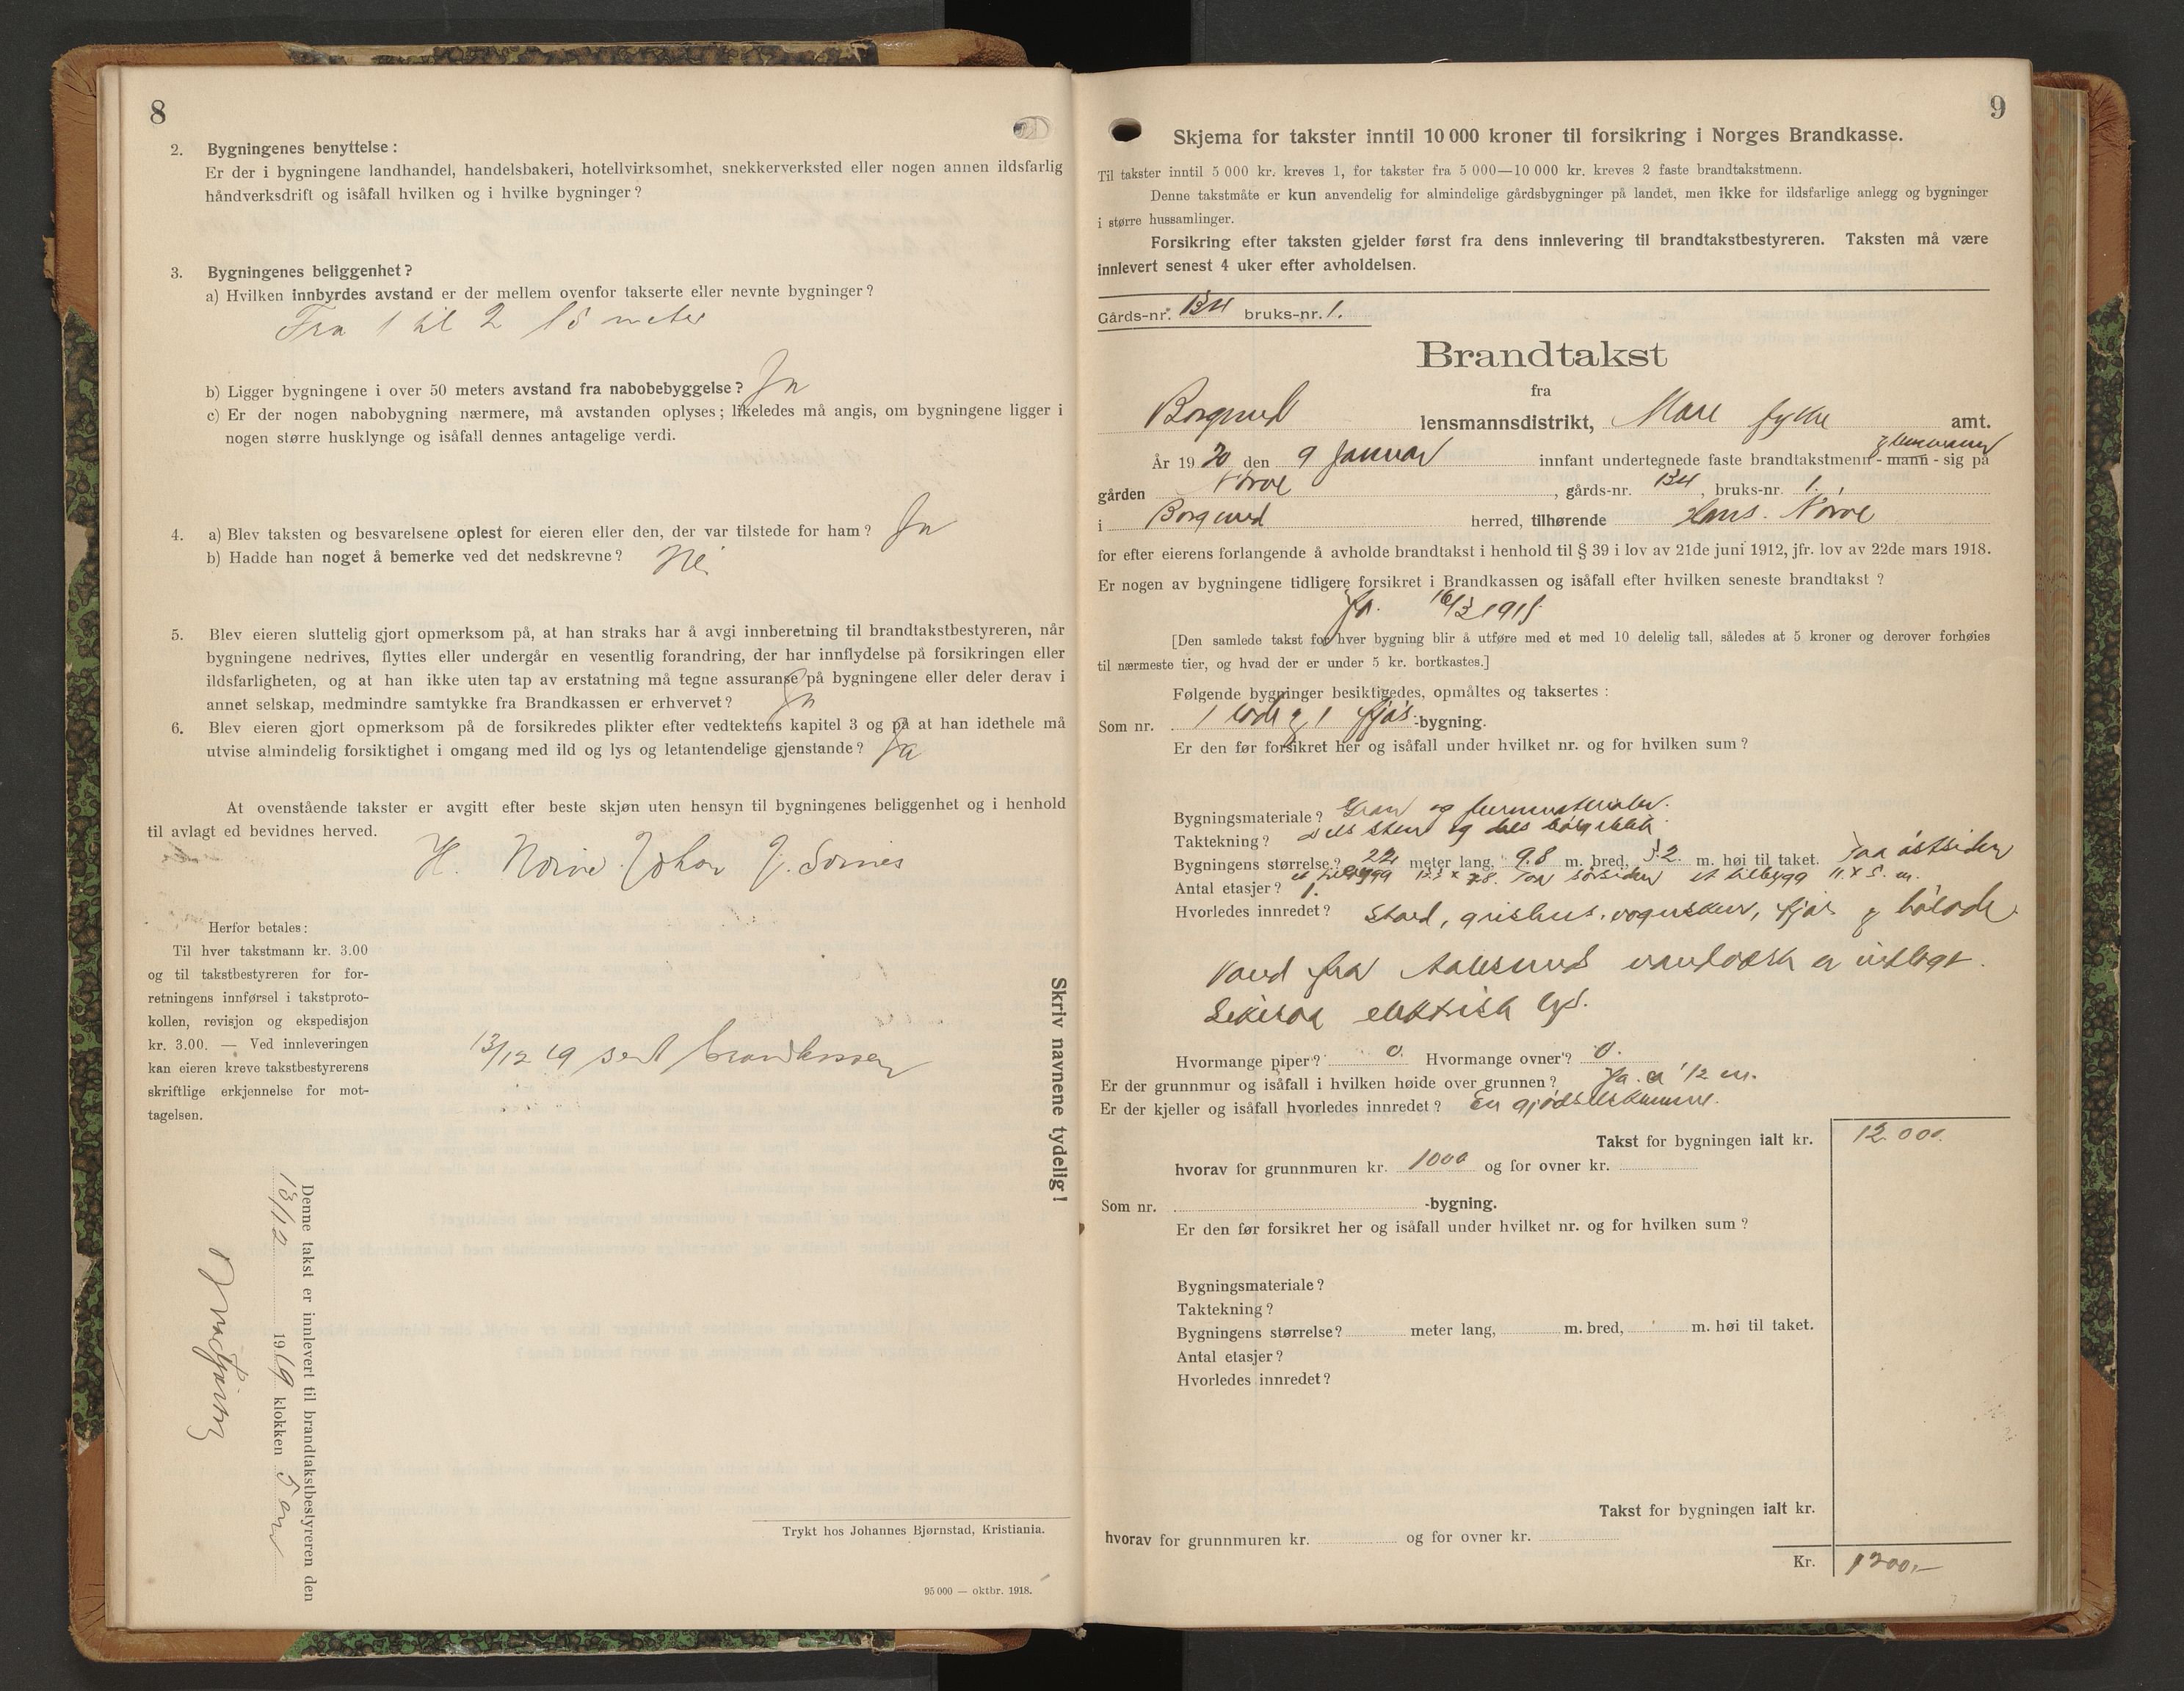 8
2. Bygningenes benyttelse :
Er der i bygningene landhandel, handelsbakeri, hotellvirksomhet, snekkerverksted eller nogen annen ildsfarlig
håndverksdrift og isåfall hvilken og i hvilke bygninger ?
3. Bygningenes beliggenhet ?
a) Hvilken innbyrdes avstand er der mellem ovenfor takserte eller nevnte bygninger ?
Fra 1 til 2 15 meter
b) Ligger bygningene i over 50 meters avstand fra nabobebyggelse ? Ja
c) Er der nogen nabobygning nærmere, må avstanden oplyses ; likeledes må angis, om bygningene ligger i
nogen større husklynge og isåfall dennes antagelige verdi.
4. a) Blev taksten og besvarelsene oplest for eieren eller den, der var tilstede for ham ? Ja
b) Hadde han noget å bemerke ved det nedskrevne ? Nei
5. Blev eieren sluttelig gjort opmerksom på, at han straks har å avgi innberetning til brandtakstbestyreren, når
bygningene nedrives, flyttes eller undergår en vesentlig forandring, der har innflydelse på forsikringen eller
ildsfarligheten, og at han ikke uten tap av erstatning må tegne assuranse på bygningene eller deler derav i
annet selskap, medmindre samtykke fra Brandkassen er erhvervet ? Ja
6. Blev eieren gjort opmerksom på de forsikredes plikter efter vedtektens kapitel 3 og på at han idethele må
utvise almindelig forsiktighet i omgang med ild og lys og letantendelige gjenstande ? Ja
At ovenstående takster er avgitt efter beste skjøn uten hensyn til bygningenes beliggenhet og i henhold
til avlagt ed bevidnes herved.
H. Nörve. Johan J.
Herfor betales :
Til hver takstmann kr. 3.00
og til takstbestyreren for for-
retningens innførsel i takstproto-
kollen, revisjon og ekspedisjon
kr. 3.00. — Ved innleveringen
kan eieren kreve takstbestyrerens
skriftlige erkjennelse for mot-
tagelsen.
13/12 19 sent brandkassen
Skriv navnene tydelig !
Denne takst er innlevert til brandtakstbestyreren den
13/12 1919 klokken 5
Trykt hos Johannes Bjørnstad, Kristiania.
95 000 — oktbr. 1918.
9
Skjema for takster inntil 10 000 kroner til forsikring i Norges Brandkasse.
Til takster inntil 5 000 kr. kreves 1, for takster fra 5 000—10 000 kr. kreves 2 faste brandtakstmenn.
Denne takstmåte er kun anvendelig for almindelige gårdsbygninger på landet, men ikke for ildsfarlige anlegg og bygninger
i større hussamlinger.
Forsikring efter taksten gjelder først fra dens innlevering til brandtakstbestyreren. Taksten må være
innlevert senest 4 uker efter avholdelsen.
Gårds-nr. 134 bruks-nr. 1.
Brandtakst
fra
Borgund lensmannsdistrikt, Möre fylke amt.
År 1920 den 9 Januar innfant undertegnede faste brandtakstmenn - mann - sig på
gården Nörve , gårds-nr. 134 , bruks-nr. 1.
i Borgund herred, tilhørende Hans. Nörve
for efter eierens forlangende å avholde brandtakst i henhold til § 39 i lov av 21de juni 1912, jfr. lov av 22de mars 1918.
Er nogen av bygningene tidligere forsikret i Brandkassen og isåfall efter hvilken seneste brandtakst ?
Ja. 16/3 1915
[Den samlede takst for hver bygning blir å utføre med et med 10 delelig tall, således at 5 kroner og derover forhøies
til nærmeste tier, og hvad der er under 5 kr. bortkastes.]
Følgende bygninger besiktigedes, opmåltes og taksertes :
Som nr. 1 löde og 1 fjös -bygning.
Er den før forsikret her og isåfall under hvilket nr. og for hvilken sum ?
Bygningsmateriale ? Gran og furumaterialer.
Taktekning ? dels sten og dels bölgeblik
Bygningens størrelse ? 22 meter lang, 9.8 m. bred, 5.2 m. høi til taket. Paa östsiden
et tilbygg 12.5 x 7.8. Paa sörsiden et tilbygg 11. x 5. m.
Antal etasjer ? 1.
Hvorledes innredet ? Stald, grishus, vognskur, fjös og hölöde
Vand fra Aalesunds vandværk er indlagt.
Likesaa elektrisk lys.
Hvormange piper ? 0. Hvormange ovner ? 0.
Er der grunnmur og isåfall i hvilken høide over grunnen ? Ja. ca 1/2 m.
Er der kjeller og isåfall hvorledes innredet ? En gjödselskumme.
Takst for bygningen ialt kr. 12.000.
hvorav for grunnmuren kr. 1000 og for ovner kr.
Som nr. -bygning.
Er den før forsikret her og isåfall under hvilket nr. og for hvilken sum ?
Bygningsmateriale ?
Taktekning ?
Bygningens størrelse ? meter lang, m. bred, m. høi til taket.
Antal etasjer ?
Hvorledes innredet ?
Takst for bygningen ialt kr.
hvorav for grunnmuren kr. og for ovner kr.
Kr. 1200.-